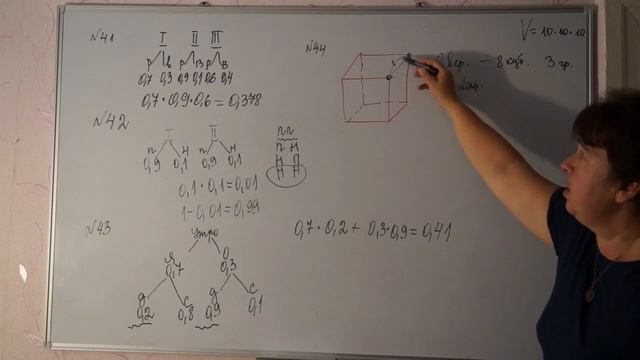 №41
I II III
р в р в р в
0,7 0,3 0,9 0,1 0,6 0,4
0,7·0,9·0,6=0,378
№42
I II
п н п н
0,9 0,1 0,9 0,1
пп
п н
н п
н н
0,1·0,1=0,01
1-0,01=0,99
№43
утро
я о
0,7 0,3
я с я с
0,2 0,8 0,9 0,1
0,7·0,2+0,3·0,9=0,41
№44
V=10·10·10
— 8 куб. 3 гр.